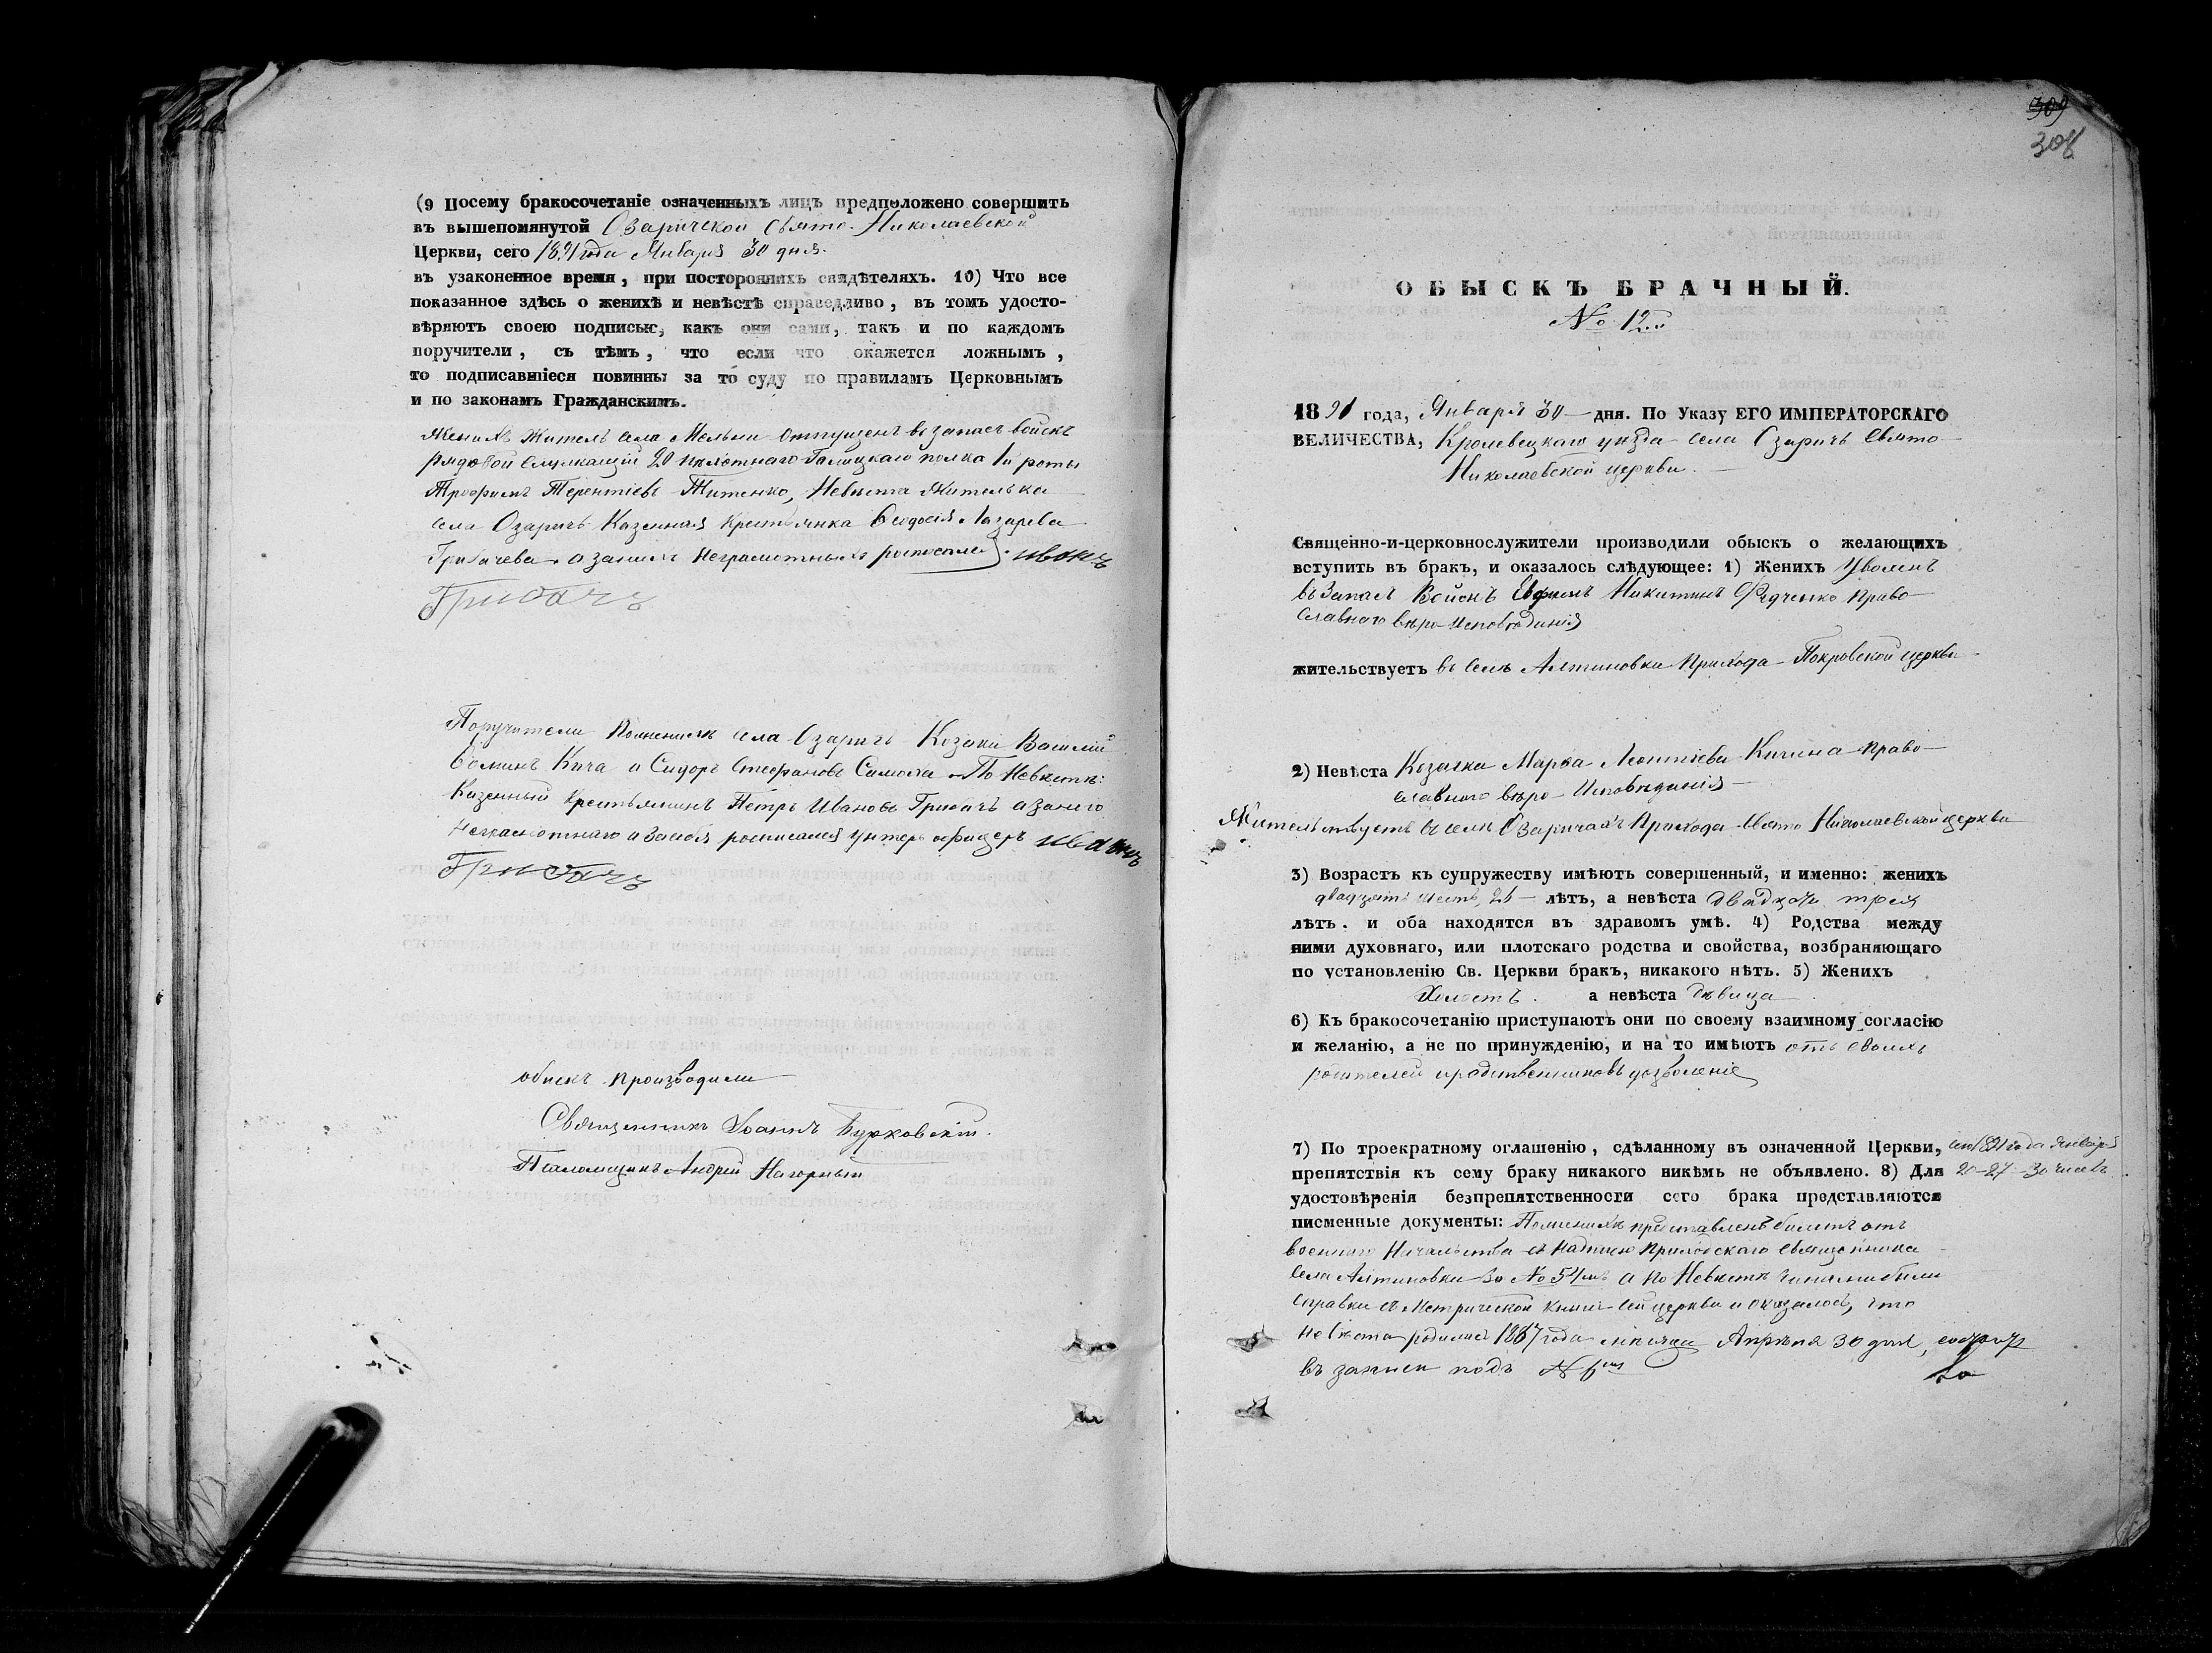 (9 Посему бракосочетаніе означенныхъ лицъ предположено совершить
въ вышепомянутой Озаричской Свято-Николаевской
Церкви, сего 1891 года Января 30 дня.
въ узаконенное время, при постороннихъ свидѣтеляхъ. 10) Что все
показанное здѣсь о женихѣ и невѣстѣ справедливо, въ томъ удосто-
вѣряютъ своею подписью, какъ они сами, такъ и по каждомъ
поручители, съ тѣмъ, что если что окажется ложнымъ,
то подписавшіеся повинны за то суду по правиламъ Церковнымъ
и по законамъ Гражданскимъ.
Женихъ житель села Мельни отпущенъ въ запасъ войскъ
рядовой служащій 20 пѣхотнаго Галицкаго полка 1й роты
Трофимъ Терентіевъ Титенко, Невѣста жителька
села Озаричъ Казенная Крестьянка Ѳеодосія Лазарева
Грибачева а за нихъ неграмотныхъ росписался Иванъ
Грибачъ
Поручители По женихѣ села Озаричъ Козаки Василій
Ѳоминъ Кича и Сидоръ Стефановъ По Невѣстѣ:
Казенный крестьянинъ Петръ Ивановъ Грибачъ а за него
неграмотнаго и за себя росписался унтеръ офицеръ Иванъ
Грибачъ
обыскъ производили
Священникъ Іоаннъ Бурковскій.
Псаломщикъ Андрей Нагорный
309
308
ОБЫСКЪ БРАЧНЫЙ.
№ 12й
1891 года, Января 30 — дня. По Указу ЕГО ИМПЕРАТОРСКАГО
ВЕЛИЧЕСТВА, Кролевецкаго уѣзда села Озаричъ Свято-
Николаевской церкви.
Священно-и-церковнослужители производили обыскъ о желающихъ
вступить въ бракъ, и оказалось слѣдующее: 1) Женихъ Уволенъ
въ Запасъ Войскъ Евфимъ Никитинъ Федченко Право-
славнаго вѣро-исповѣданія
жительствуетъ въ селѣ Алтиновки Прихода Покровской церкви
2) Невѣста Козачка Марфа Леонтіева Кичина право-
славного вѣро-Исповѣданія —
Жительствуетъ въ селѣ Озаричахъ Прихода Свято Николаевской церкви
3) Возрастъ къ супружеству имѣютъ совершенный, и именно: женихъ
двадцать шесть, 26 — лѣтъ, а невѣста двадцать трех
лѣтъ. и оба находятся въ здравомъ умѣ. 4) Родства между
ними духовнаго, или плотскаго родства и свойства, возбраняющаго
по установленію Св. Церкви бракъ, никакого нѣтъ. 5) Женихъ
Холостъ. а невѣста дѣвица
6) Къ бракосочетанію приступаютъ они по своему взаимному согласію
и желанію, а не по принужденію, и на то имѣютъ отъ своихъ
родителей и родственниковъ дозволеніе
7) По троекратному оглашенію, сдѣланному въ означенной Церкви, 1891 года Января
препятствія къ сему браку никакого никѣмъ не объявлено. 8) Для 20-27-30 чиселъ
удостовѣренія безпрепятственности сего брака представляются
писменные документы: По женихѣ представленъ билетъ отъ
военнаго Начальства съ надписю Приходскаго священника
села Алтиновки за № 54мъ а по Невѣстѣ чинимы были
справки съ Метрической книги сей церкви и оказалось, что
невѣста родилась 1867 года мѣсяца Апрѣля 30 дня,
въ записи подъ № 6мъ